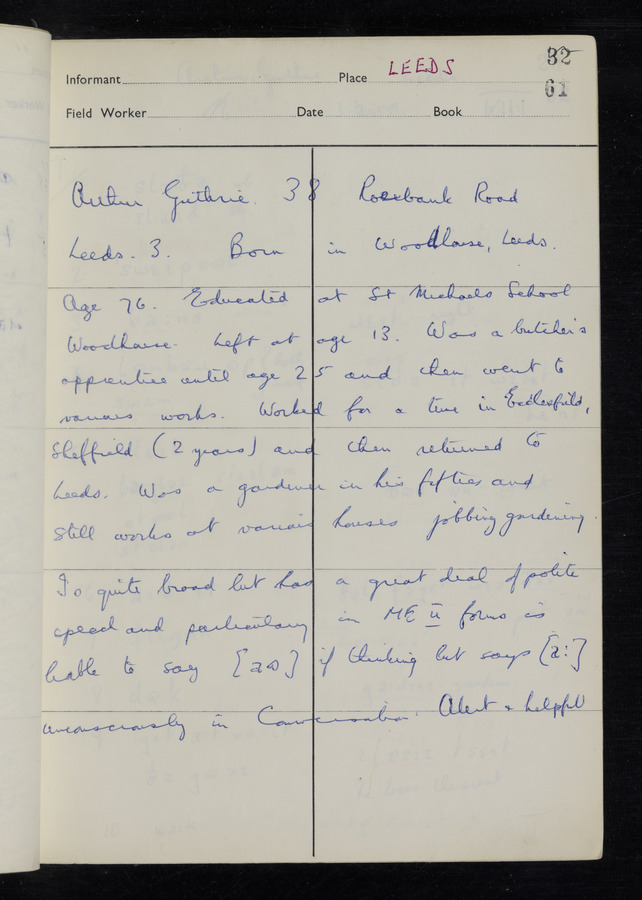 32
Informant Place LEEDS
61
Field Worker Date Book
Arthur Guthrie. 38 Rosebank Road
Leeds. 3. Born in Woodhouse, Leeds.
Age 76. Educated at St Michaels School
Woodhouse. Left at age 13. Was a butcher's
apprentice until age 25 and then went to
various works. Worked for a time in Ecclesfield,
Sheffield (2 years) and then returned to
Leeds. Was a gardener in his fifties and
still works at various houses jobbing gardening.
Is quite broad but has a great deal of polite
speech and particularly in ME ū forms is
liable to say if thinking but says [a:]
unconsciously in conversation. Alert + helpful